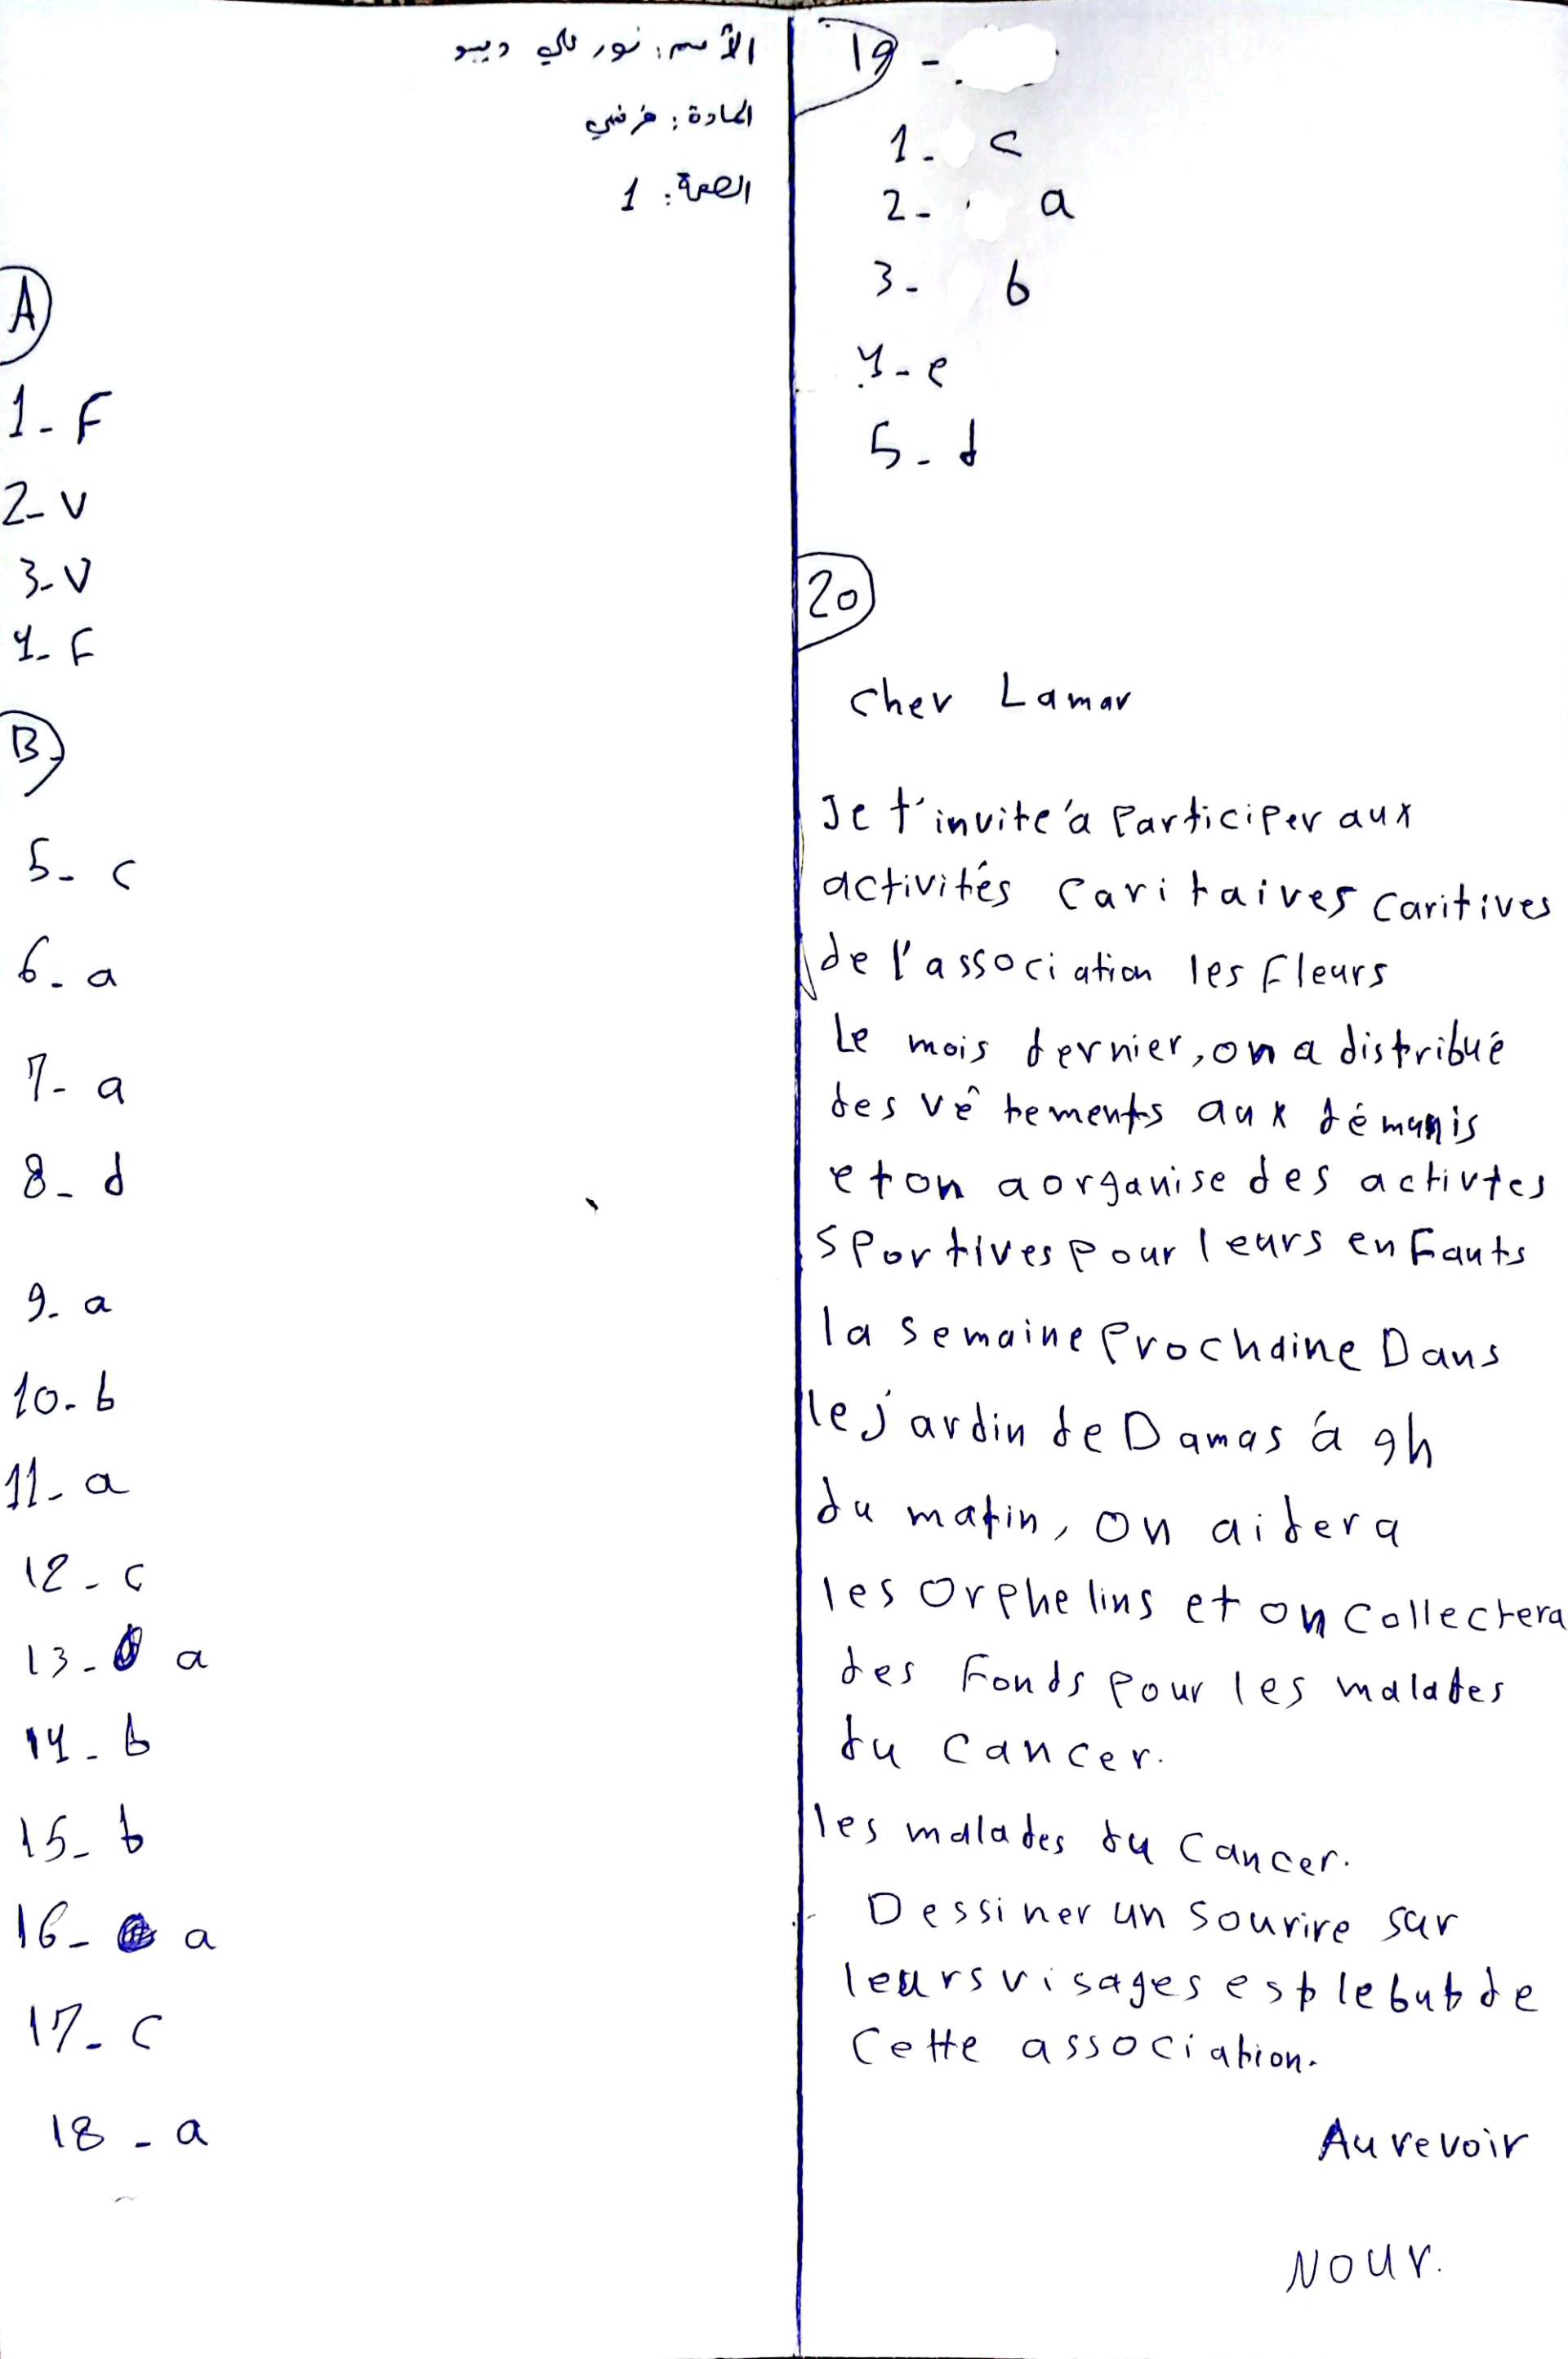 الأسم: نور علي ديبو
المادة: فرنسي
الصفحة: 1
A
1- F
2- V
3- V
4- F
B
5- c
6- a
7- a
8- d
9- a
10- b
11- a
12- c
13- a
14- b
15- b
16- a
17- c
18- a
19 -
1- c
2- a
3- b
4- e
5- d
20
cher Lamar
Je t'invite à Participer aux
activités Caritaives Caritives
de l'association les Fleurs
Le mois dernier, on a distribué
des vêtements aux démunis
et on a organise des activtes
sportives pour leurs enfants
la semaine Prochaine Dans
le jardin de Damas à 9h
du matin, on aidera
les orphelins et on Collectera
des Fonds Pour les malades
du cancer.
les malades du Cancer.
Dessiner un sourire sur
leurs visages est le but de
Cette association.
Au revoir
Nour.